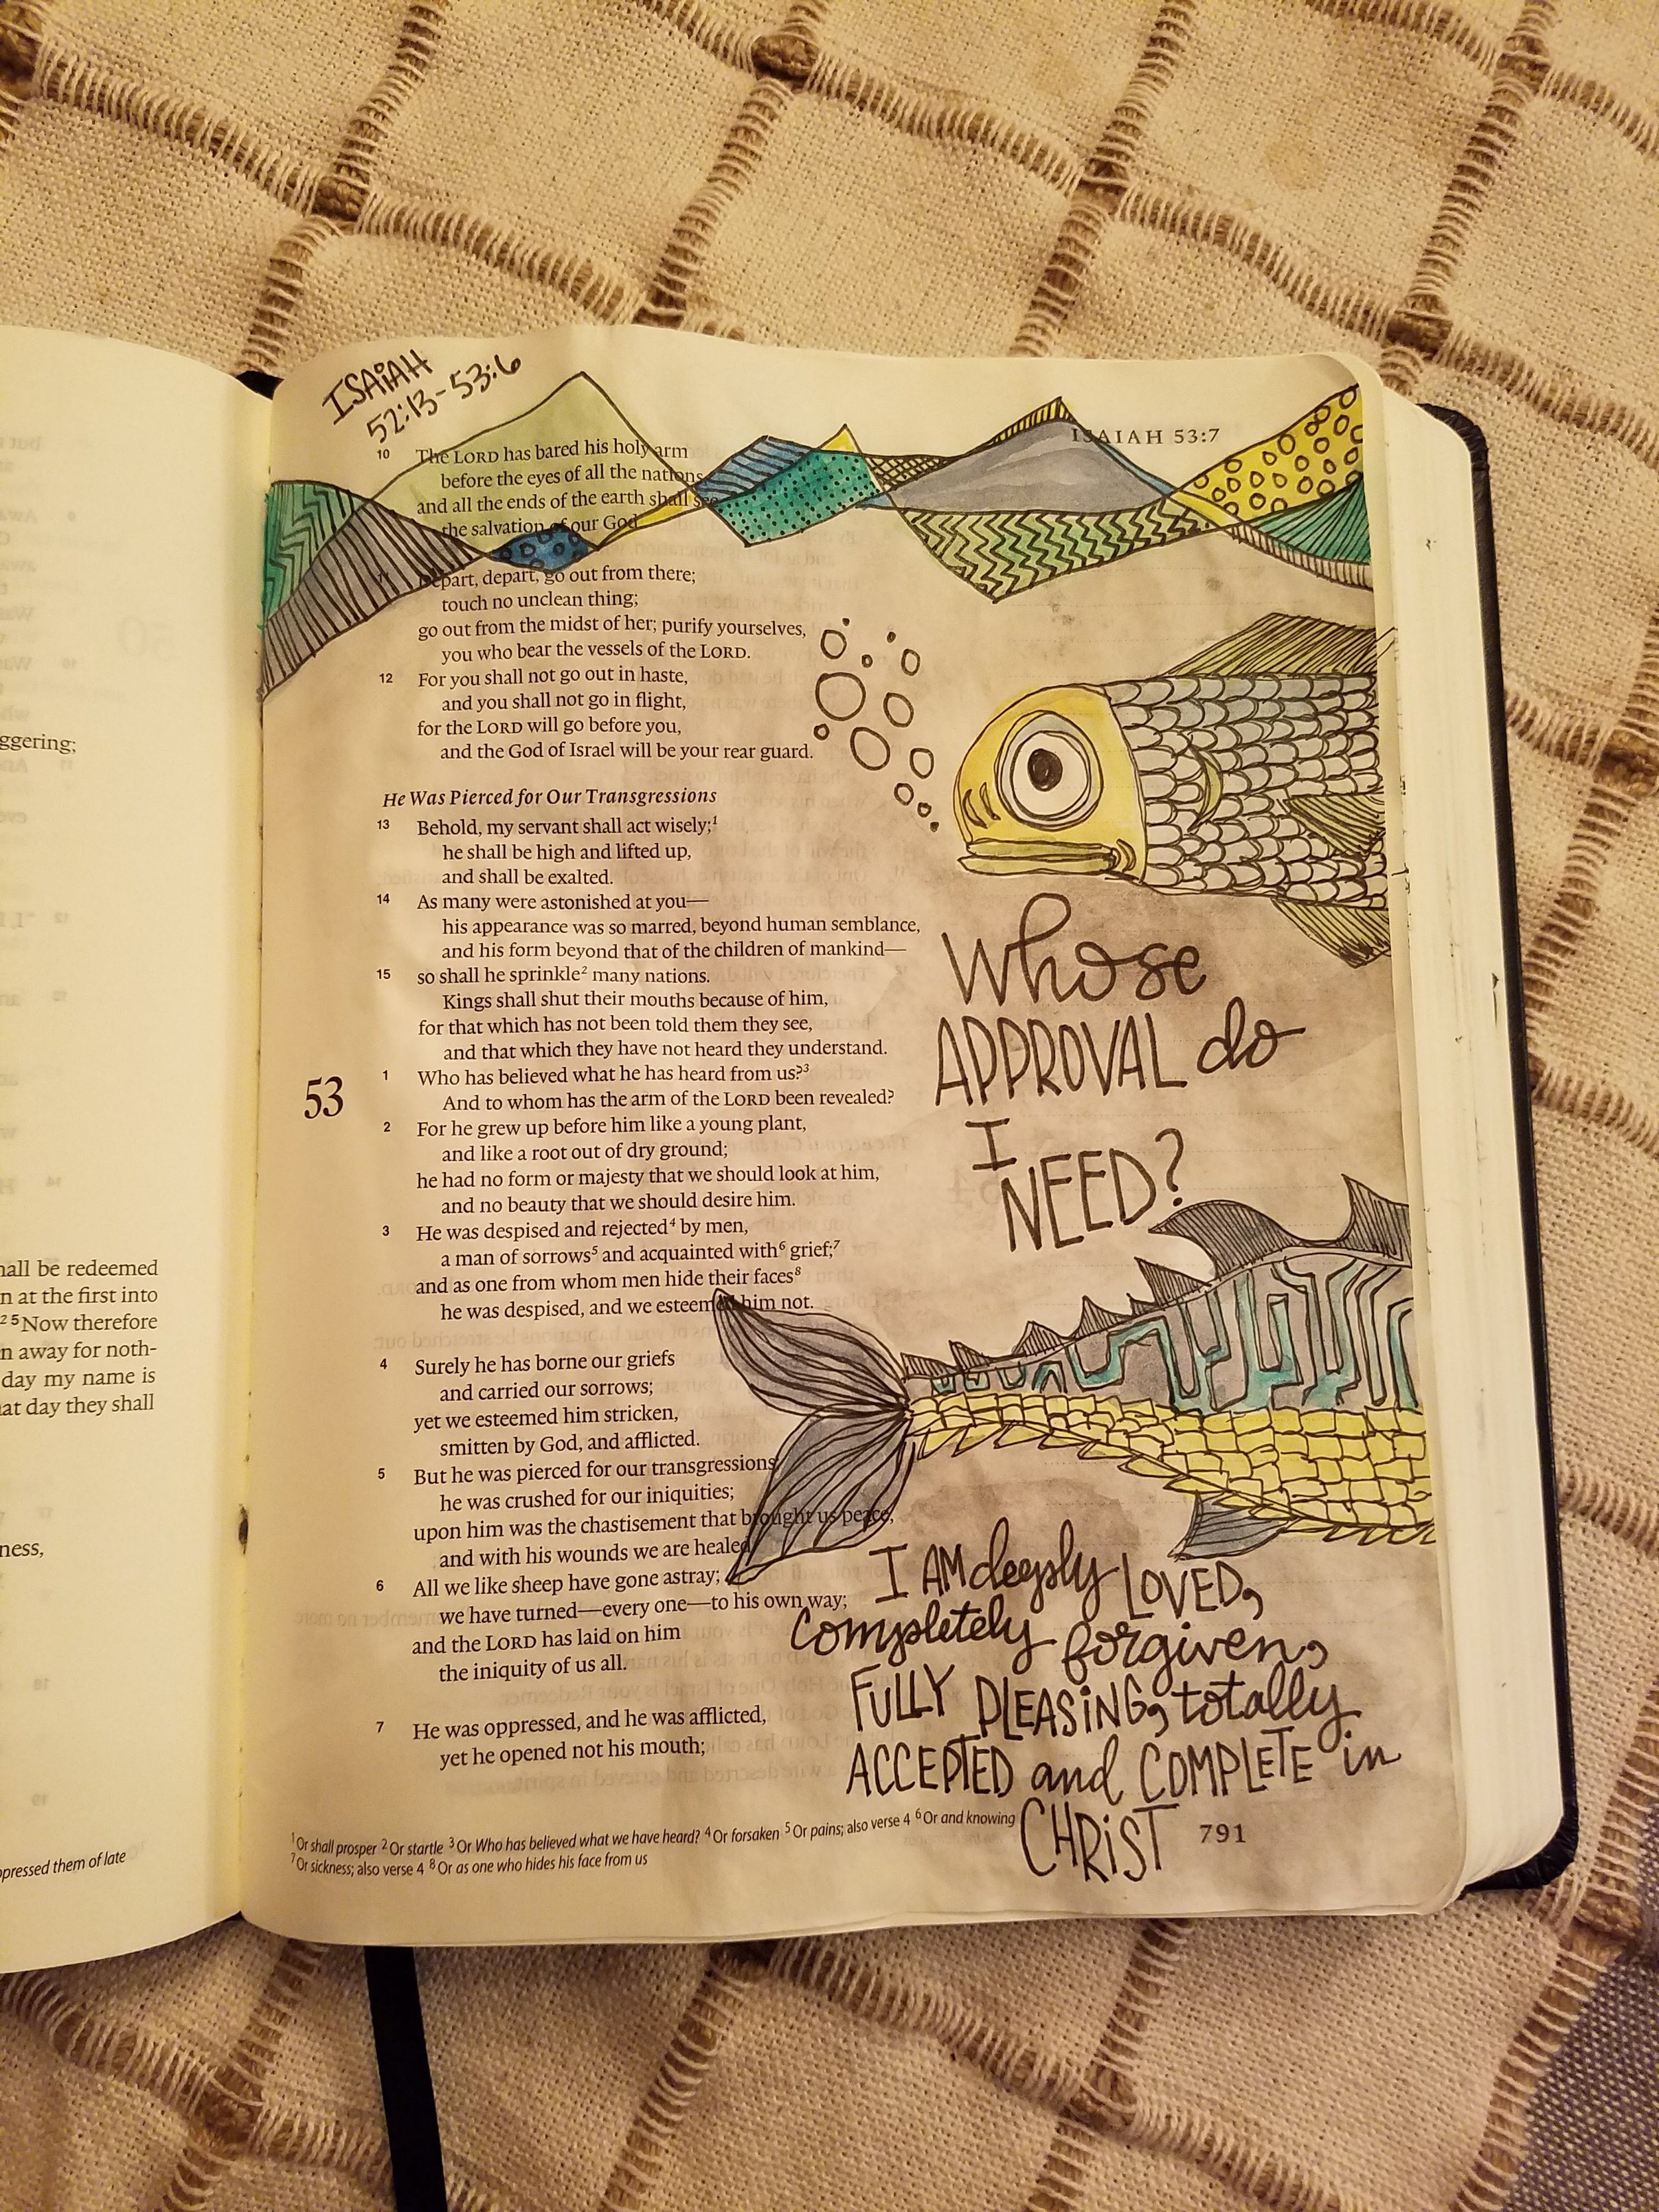 ISAIAH
52:13-53:6
ISAIAH 53:7
10 The LORD has bared his holy arm
before the eyes of all the nations,
and all the ends of the earth shall see
the salvation of our God.
11 Depart, depart, go out from there;
touch no unclean thing;
go out from the midst of her; purify yourselves,
you who bear the vessels of the LORD.
12 For you shall not go out in haste,
and you shall not go in flight,
for the LORD will go before you,
and the God of Israel will be your rear guard.
He Was Pierced for Our Transgressions
13 Behold, my servant shall act wisely;1
he shall be high and lifted up,
and shall be exalted.
14 As many were astonished at you—
his appearance was so marred, beyond human semblance,
and his form beyond that of the children of mankind—
15 so shall he sprinkle2 many nations.
Kings shall shut their mouths because of him,
for that which has not been told them they see,
and that which they have not heard they understand.
53 1 Who has believed what he has heard from us?3
And to whom has the arm of the LORD been revealed?
2 For he grew up before him like a young plant,
and like a root out of dry ground;
he had no form or majesty that we should look at him,
and no beauty that we should desire him.
3 He was despised and rejected4 by men,
a man of sorrows5 and acquainted with6 grief;7
and as one from whom men hide their faces8
he was despised, and we esteemed him not.
4 Surely he has borne our griefs
and carried our sorrows;
yet we esteemed him stricken,
smitten by God, and afflicted.
5 But he was pierced for our transgressions;
he was crushed for our iniquities;
upon him was the chastisement that brought us peace,
and with his wounds we are healed.
6 All we like sheep have gone astray;
we have turned—every one—to his own way;
and the LORD has laid on him
the iniquity of us all.
7 He was oppressed, and he was afflicted,
yet he opened not his mouth;
1 Or shall prosper 2 Or startle 3 Or Who has believed what we have heard? 4 Or forsaken 5 Or pains; also verse 4 6 Or and knowing
7 Or sickness; also verse 4 8 Or as one who hides his face from us
791
Whose
APPROVAL do
I
NEED?
I AM deeply LOVED,
Completely forgiven,
FULLY PLEASING, totally
ACCEPTED and COMPLETE in
CHRIST
ggering;
hall be redeemed
n at the first into
25 Now therefore
n away for noth-
day my name is
hat day they shall
ness,
ppressed them of late